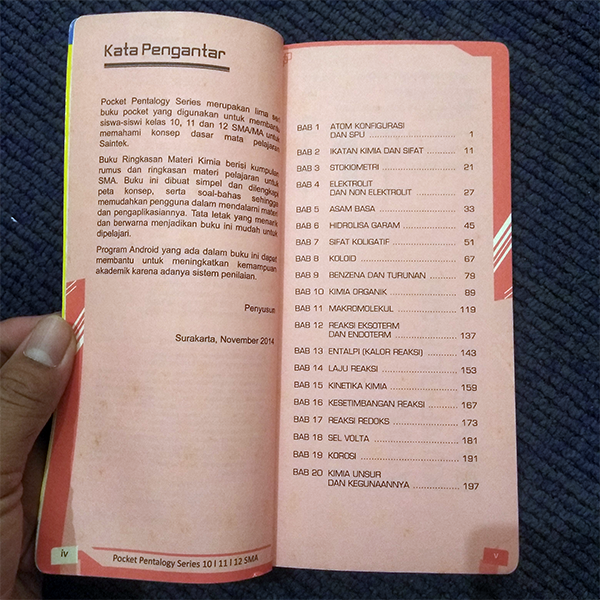 Kata Pengantar
Pocket Pentalogy Series merupakan lima seri
buku pocket yang digunakan untuk membantu
siswa-siswi kelas 10, 11 dan 12 SMA/MA untuk
memahami konsep dasar mata pelajaran
Saintek.
Buku Ringkasan Materi Kimia berisi kumpulan
rumus dan ringkasan materi pelajaran untuk
SMA. Buku ini dibuat simpel dan dilengkapi
peta konsep, serta soal-bahas sehingga
memudahkan pengguna dalam mendalami materi
dan pengaplikasiannya. Tata letak yang menarik
dan berwarna menjadikan buku ini mudah untuk
dipelajari.
Program Android yang ada dalam buku ini dapat
membantu untuk meningkatkan kemampuan
akademik karena adanya sistem penilaian.
Penyusun
Surakarta, November 2014
iv
Pocket Pentalogy Series 10 I 11 I 12 SMA
BAB 1 ATOM KONFIGURASI
DAN SPU ............ 1
BAB 2 IKATAN KIMIA DAN SIFAT ............ 11
BAB 3 STOKIOMETRI ............ 21
BAB 4 ELEKTROLIT
DAN NON ELEKTROLIT ............ 27
BAB 5 ASAM BASA ............ 33
BAB 6 HIDROLISA GARAM ............ 45
BAB 7 SIFAT KOLIGATIF ............ 51
BAB 8 KOLOID ............ 67
BAB 9 BENZENA DAN TURUNAN ............ 79
BAB 10 KIMIA ORGANIK ............ 89
BAB 11 MAKROMOLEKUL ............ 119
BAB 12 REAKSI EKSOTERM
DAN ENDOTERM ............ 137
BAB 13 ENTALPI (KALOR REAKSI) ............ 143
BAB 14 LAJU REAKSI ............ 153
BAB 15 KINETIKA KIMIA ............ 159
BAB 16 KESETIMBANGAN REAKSI ............ 167
BAB 17 REAKSI REDOKS ............ 173
BAB 18 SEL VOLTA ............ 181
BAB 19 KOROSI ............ 191
BAB 20 KIMIA UNSUR
DAN KEGUNAANNYA ............ 197
v